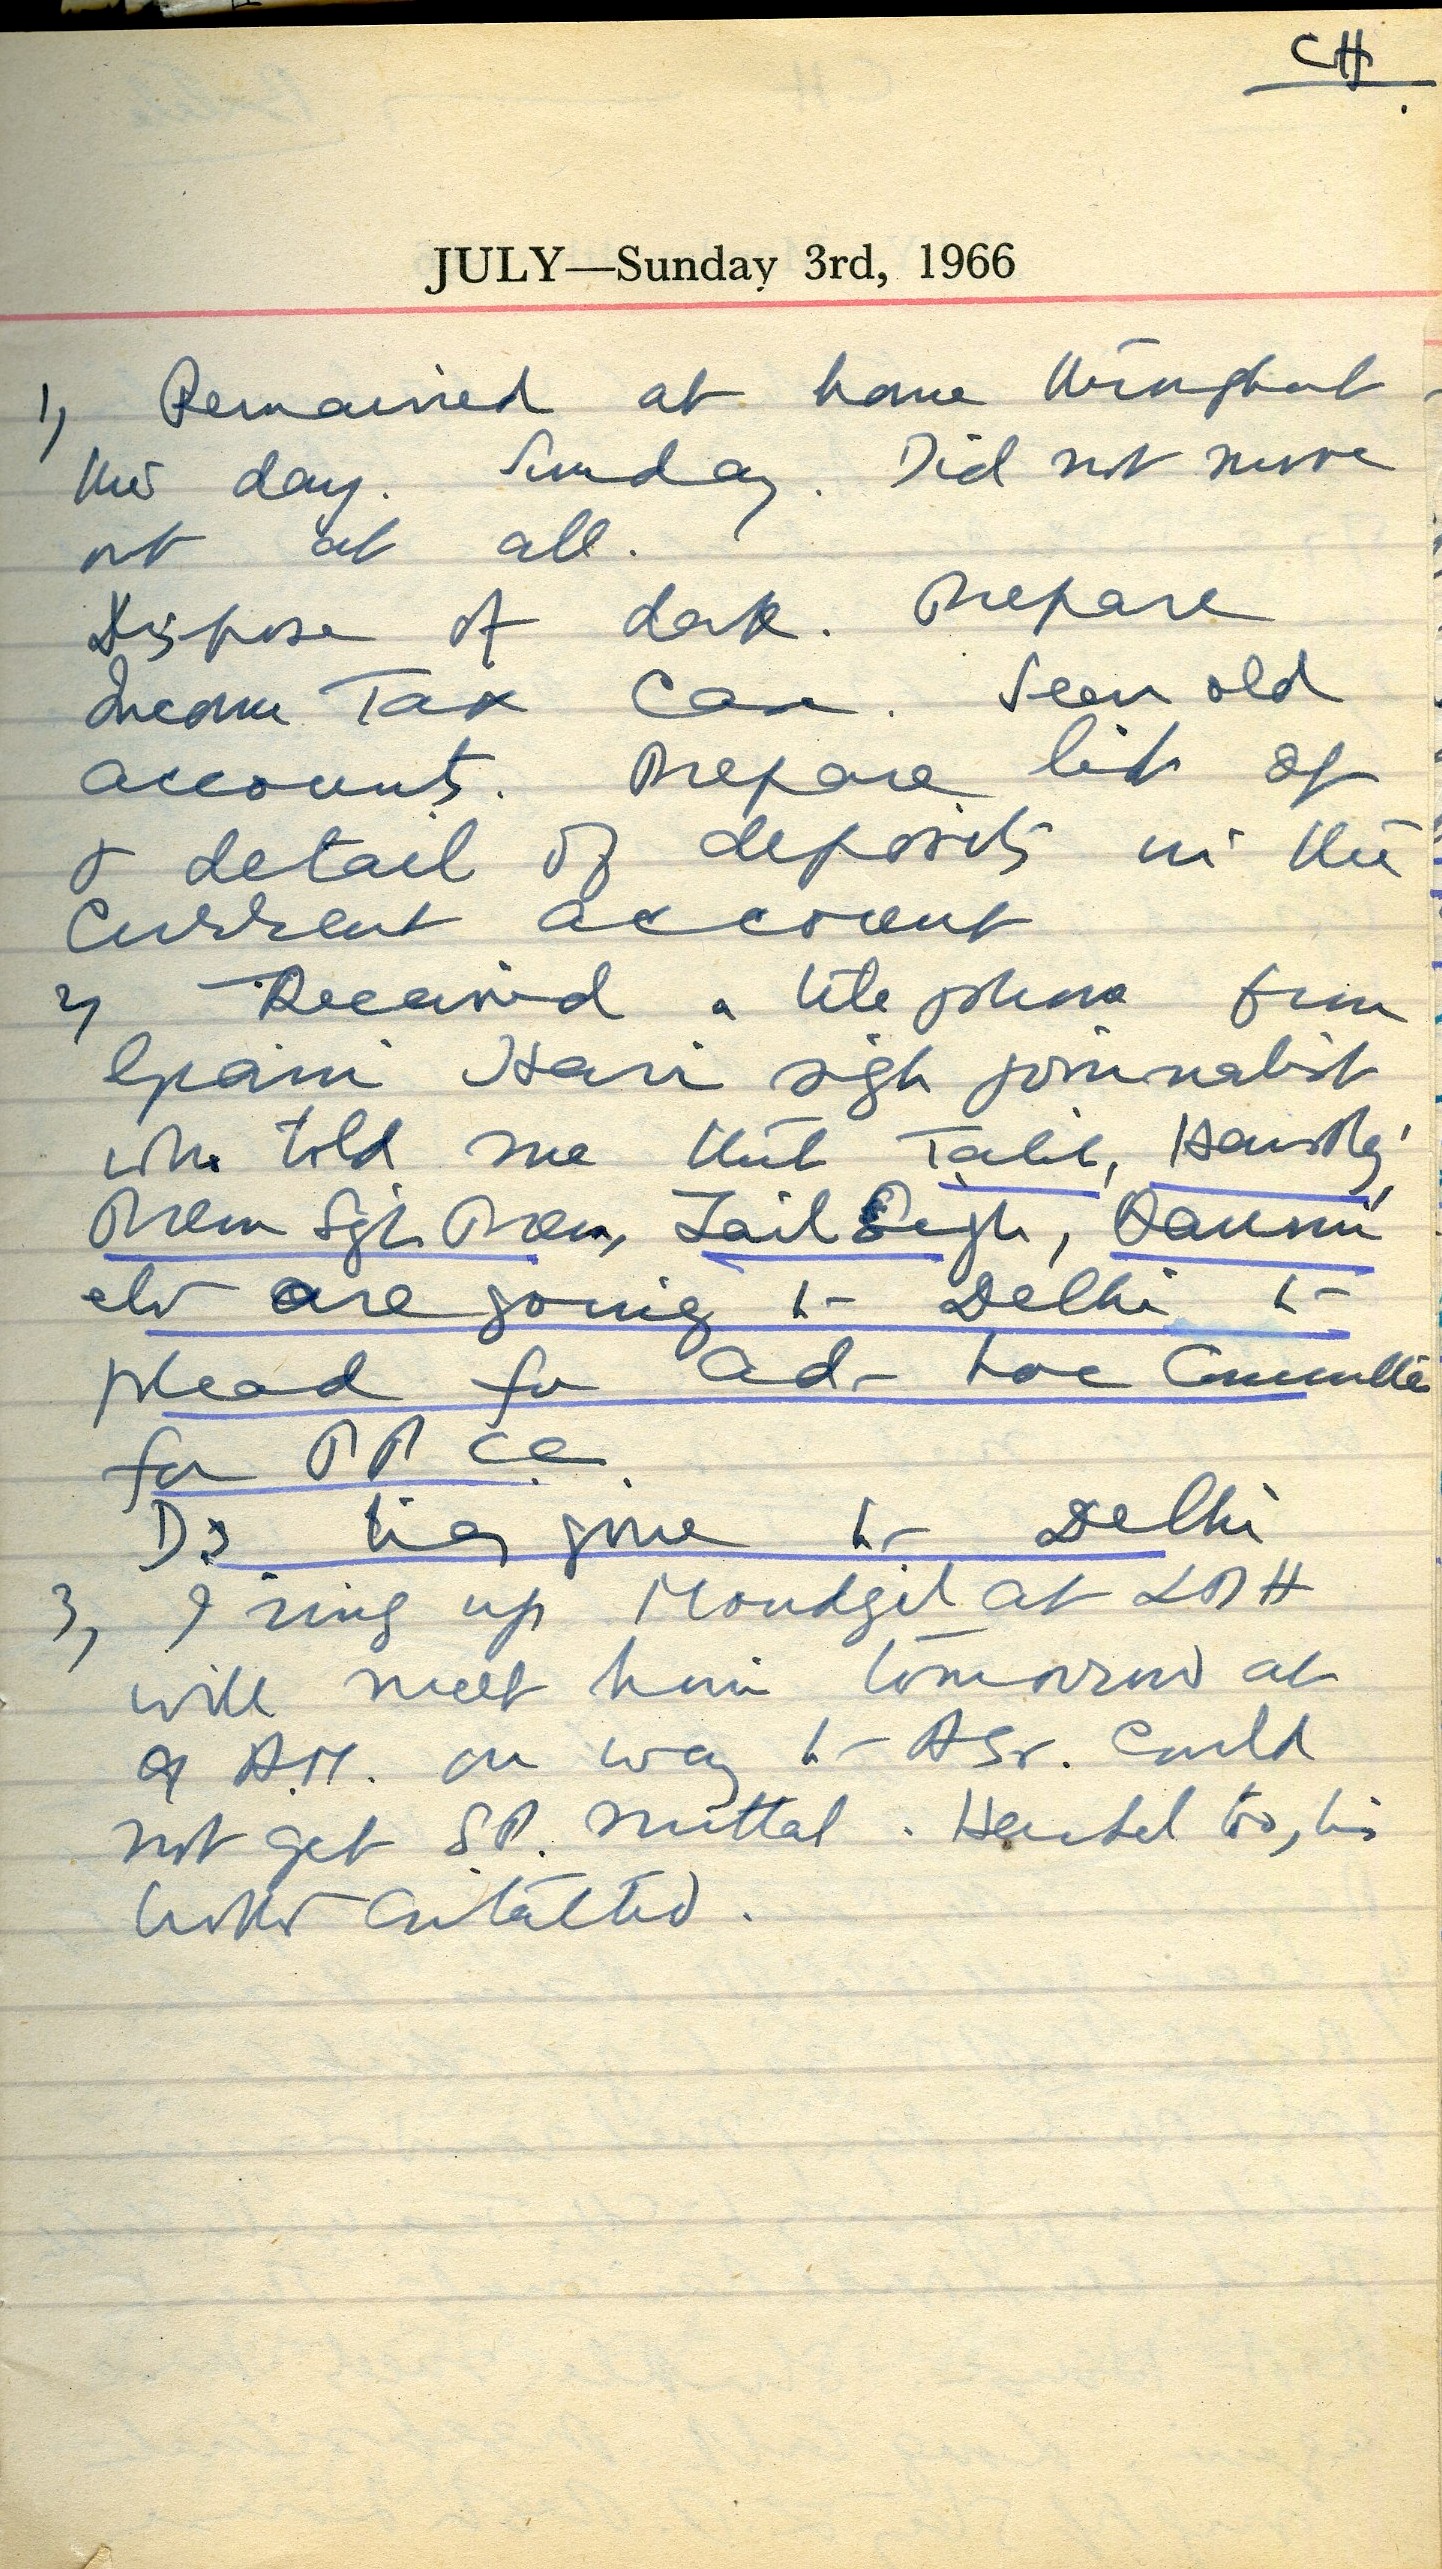 CH.
JULY—Sunday 3rd, 1966
1, Remained at home throughout
the day. Sunday. Did not move
out at all.
Dispose of dak. Prepare
Income Tax Case. Seen old
accounts. Prepare list of
& detail of deposits in the
Current account
2, Received a telephone from
Gyani Hari Sigh journalist
who told me that Talib,
Prem Sgh Prem, Zail Singh,
etc are going to Delhi to
plead for ad-hoc Committee
for PPCC.
DS has gone to Delhi
3, I ring up Moudgil at LDH
will meet him tomorrow at
A.M. on way to ASr. Could
not get S.P. Mittal.
contacted.